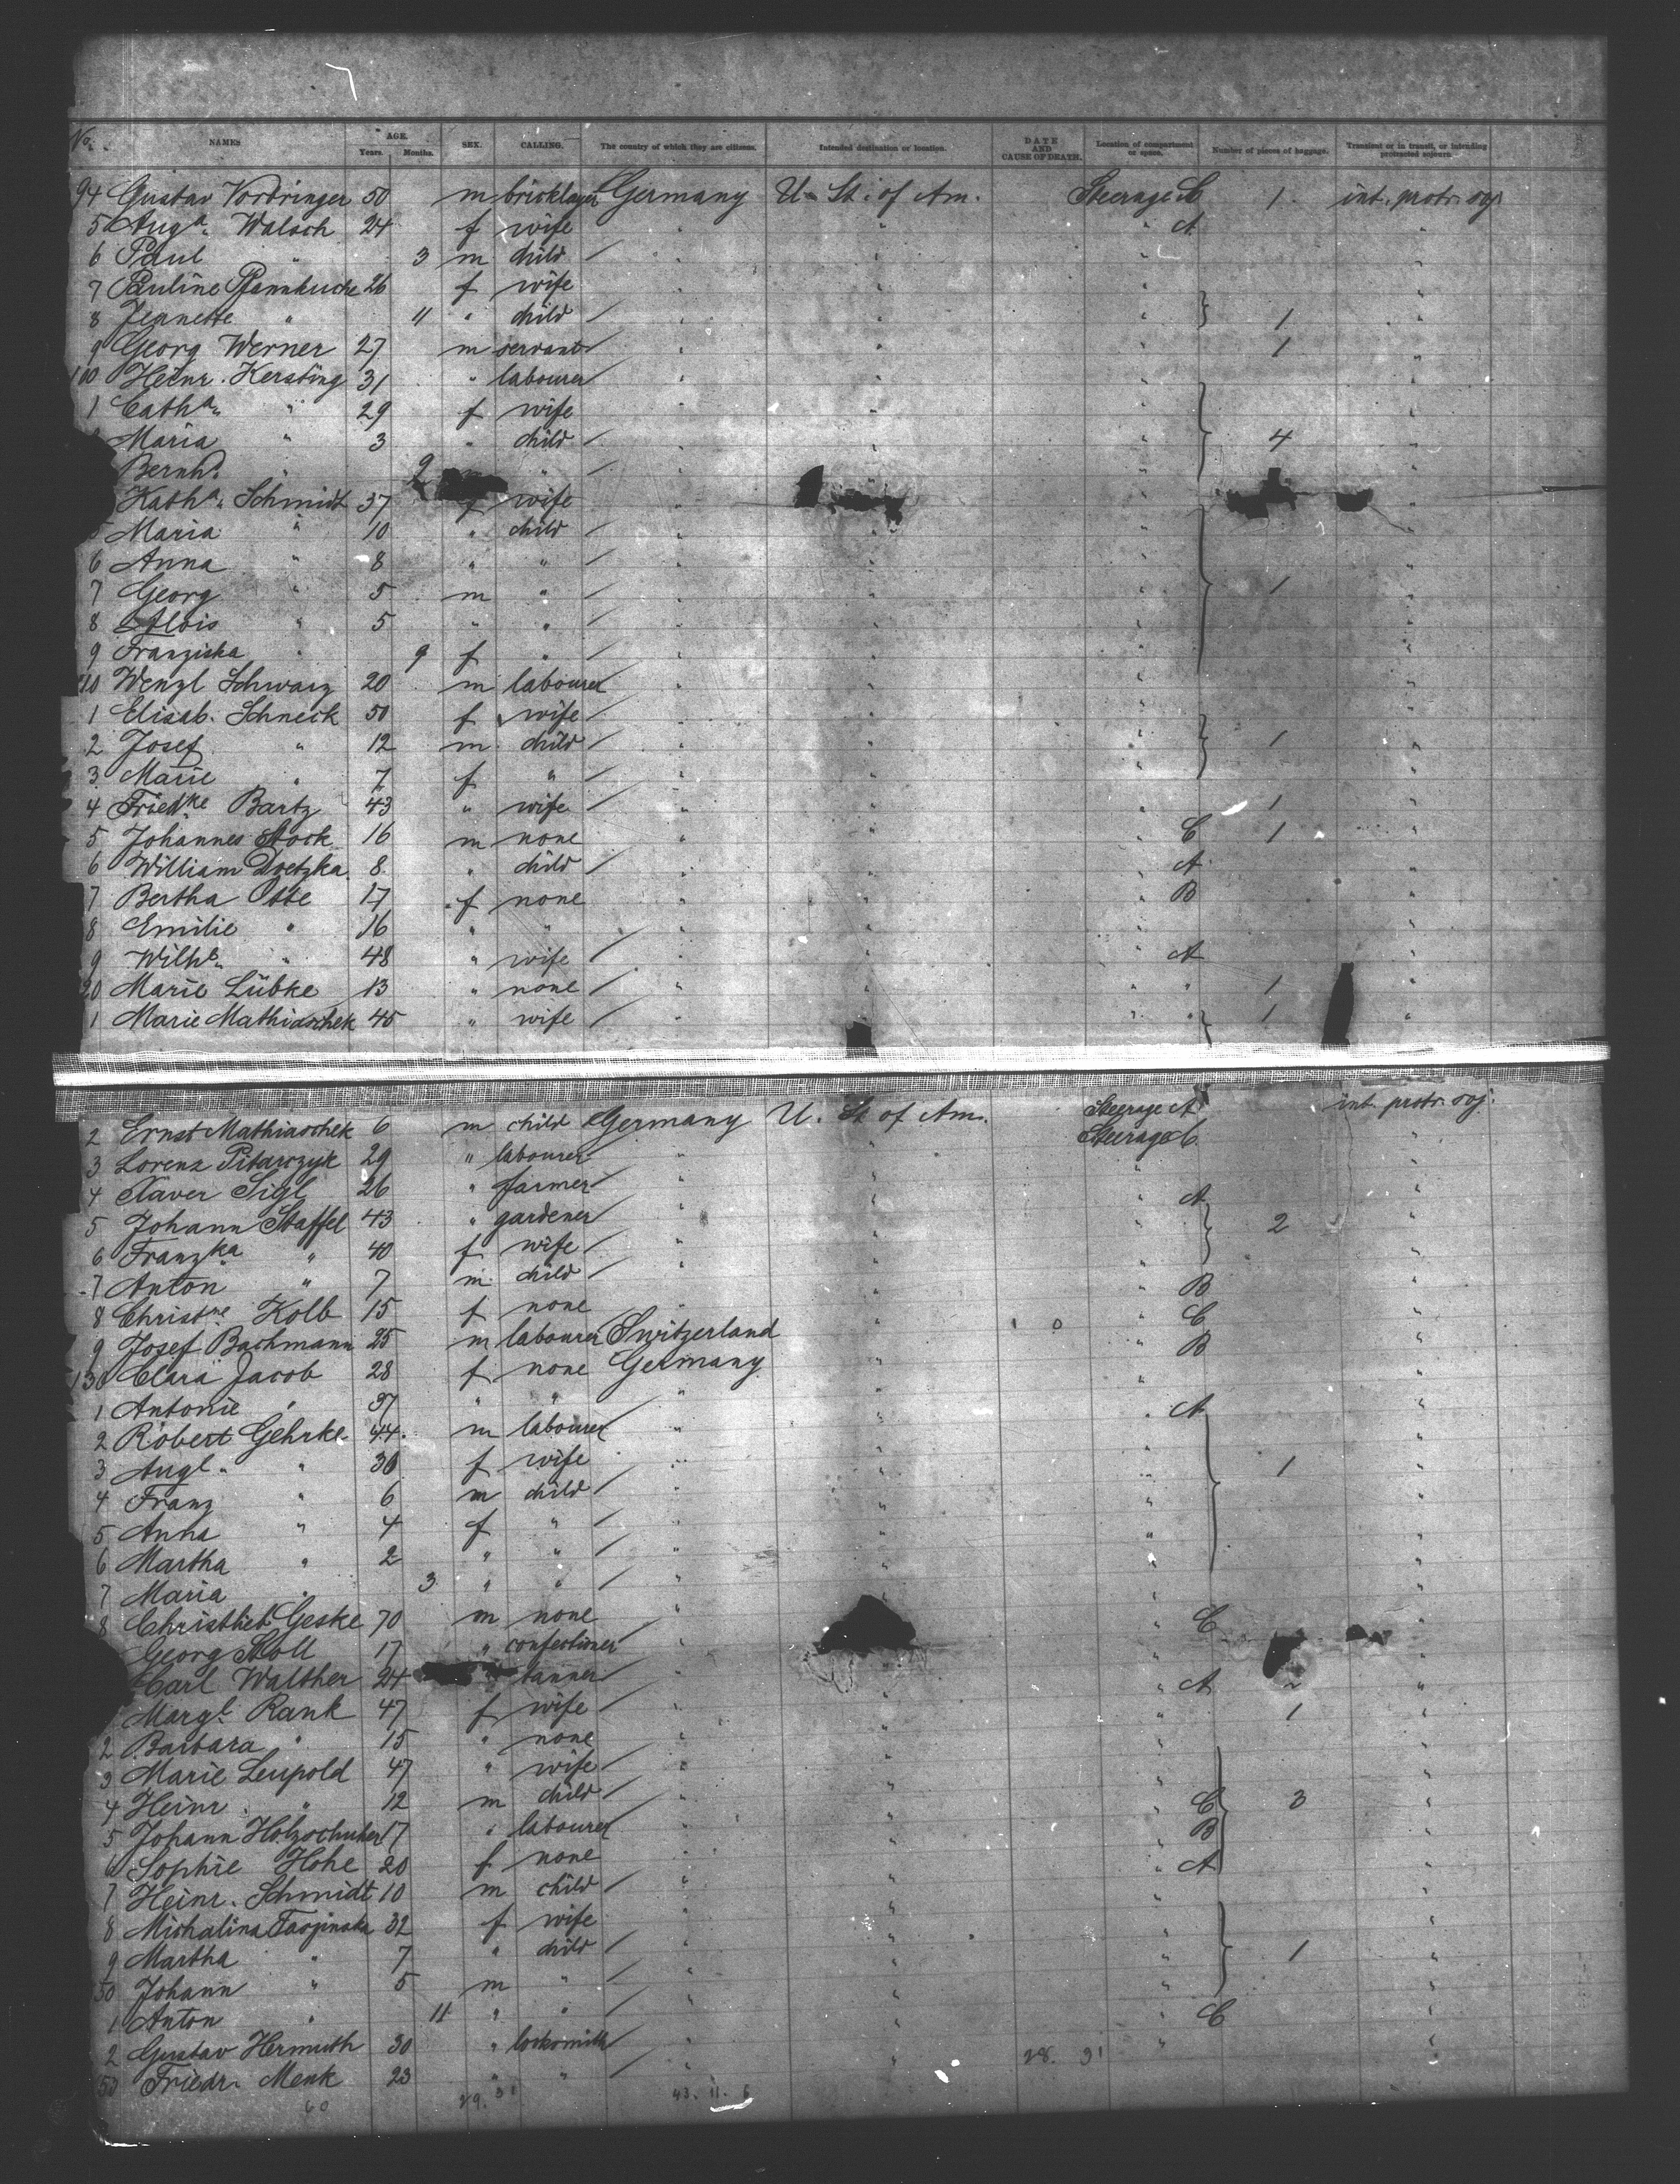 No. NAMES AGE. Years. Months. SEX. CALLING. The country of which they are citizens. Intended destination or location. DATE AND CAUSE OF DEATH. Location of compartment or space. Number of pieces of baggage. Transient or in transit, or intending protracted sojourn.
94 Gustav Vordringer 50 m bricklayer Germany U. St. of Am. Steerage C 1 int. protr. soj
5 Augᵃ. Walsch 24 f wife " " " A "
6 Paul " 3 m child / " " "
7 Pauline Pfannkuche 26 f wife " " "
8 Jeanette " 11 " child / " " " 1 "
9 Georg Werner 27 m servant " " " 1 "
100 Heinr. Kersting 31 " labourer " " " "
1 Cathᵃ. " 29 f wife " " " "
Maria " 3 " child / " " " 4 "
Bernhᵈ. " 9 " / "
Kathᵃ. Schmidt 37 f wife " " "
5 Maria " 10 " child / " " " "
6 Anna " 8 " " / " " " "
7 Georg " 5 m " / " " " 1 "
8 Alois " 5 " " / " " " "
9 Franziska " 9 f " / " " " "
110 Wenzl Schwarz 20 m labourer " " " "
1 Elisab. Schneck 50 f wife / " " " "
2 Josef " 12 m child / " " " 1 "
3 Marie " 7 f " / " " " "
4 Friedᵏᵉ Bartz 43 " wife / " " " 1 "
5 Johannes Stock 16 m none " " " C 1 "
6 William Doetzka 8 " child / " " " A "
7 Bertha Otte 17 f none " " " B "
8 Emilie " 16 " " " " " "
9 Wilhᵉ. " 48 " wife / " " " A "
20 Marie Lübke 13 " none / " " " " 1 "
1 Marie Mathiaschek 45 " wife / " " " " 1 "
2 Ernst Mathiaschek 6 m child Germany U. St. of Am. Steerage A int. protr. soj.
3 Lorenz Pitarczyk 29 " labourer " " Steerage C "
4 Xaver Sigl 26 " farmer " " " "
5 Johann Staffel 43 " gardener " " " A 2 "
6 Franzᵏᵃ " 40 f wife / " " " "
7 Anton " 7 m child / " " " "
8 Christⁿᵉ Kolb 15 f none " " " B "
9 Josef Bachmann 25 m labourer Switzerland " " C "
130 Clara Jacob 28 f none Germany " " B "
1 Antonie " 37 " " " " " "
2 Robert Gehrke 44 m labourer " " " A "
3 Augᵗ. " 30 f wife " " " 1 "
4 Franz " 6 m child / " " " "
5 Anna " 4 f " / " " " "
6 Martha " 2 " " / " " " "
7 Maria " 3 " " / " " " "
8 Christlieb Geske 70 m none " " "
Georg Stoll 17 " confectioner " " C
Carl Walther 24 tanner " " "
Margᵗ. Rank 47 f wife / " " " A 1 "
2 Barbara " 15 " none " " " "
3 Marie Leupold 47 " wife / " " " "
4 Heinr. " 12 m child / " " " 3 "
5 Johann Holzschuher 17 " labourer " " " C "
6 Sophie Hohe 20 f none " " " B "
7 Heinr. Schmidt 10 m child / " " " A "
8 Michalina 32 f wife " " " "
9 Martha " 7 " child / " " " 1 "
50 Johann " 5 m " / " " " "
1 Anton " 11 " " / " " " "
2 Gustav Hermuth 30 " locksmith " " " C "
53 Friedr. Menk 23 " " / " " " "